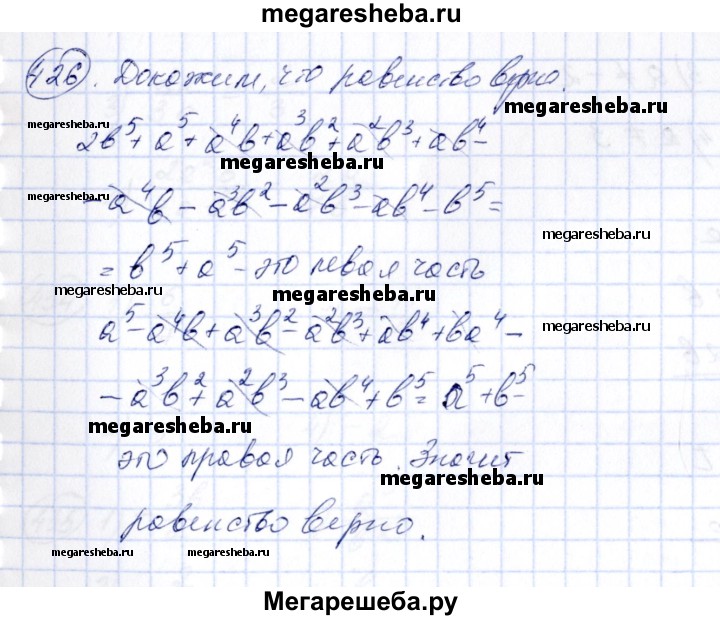 megaresheba.ru
426. Докажим, что равенство верно.
megaresheba.ru
megaresheba.ru
2в⁵+а⁵+а⁴в+а³в²+а²в³+ав⁴-
megaresheba.ru
megaresheba.ru
-а⁴в-а³в²-а²в³-ав⁴-в⁵=
megaresheba.ru
=в⁵+а⁵-это левая часть
megaresheba.ru
megaresheba.ru
а⁵-а⁴в+а³в²-а²в³+ав⁴+ва⁴-
megaresheba.ru
-а³в²+а²в³-ав⁴+в⁵=а⁵+в⁵-
megaresheba.ru
это правая часть. Значит
megaresheba.ru
равенство верно.
megaresheba.ru
megaresheba.ru
Мегарешеба.ру